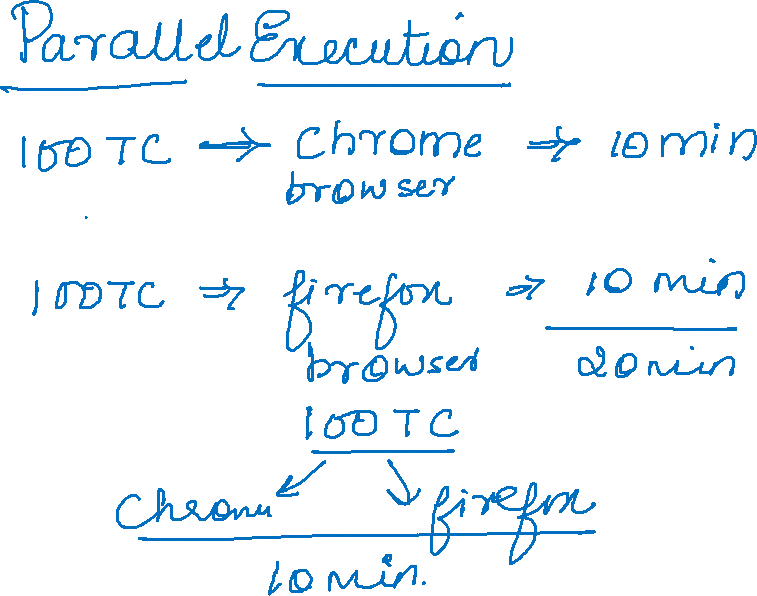 Parallel Execution
100 TC → Chrome browser ⇒ 10 min
100 TC ⇒ firefox browser ⇒ 10 min
20 min
100 TC
Chrome firefox
10 min.